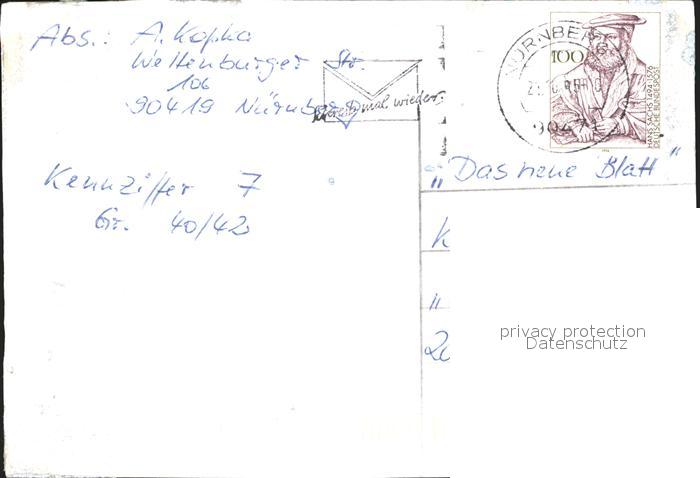 Abs.: A. Kopka
Weltenburger Str.
106
90419 Nürnberg
Schreib mal wieder
NÜRNBERG
100
HANS SACHS 1494-1576
DEUTSCHE BUNDESPOST
Kennziffer 7
Gr. 40/42
"Das neue Blatt"
K
"
20
privacy protection
Datenschutz